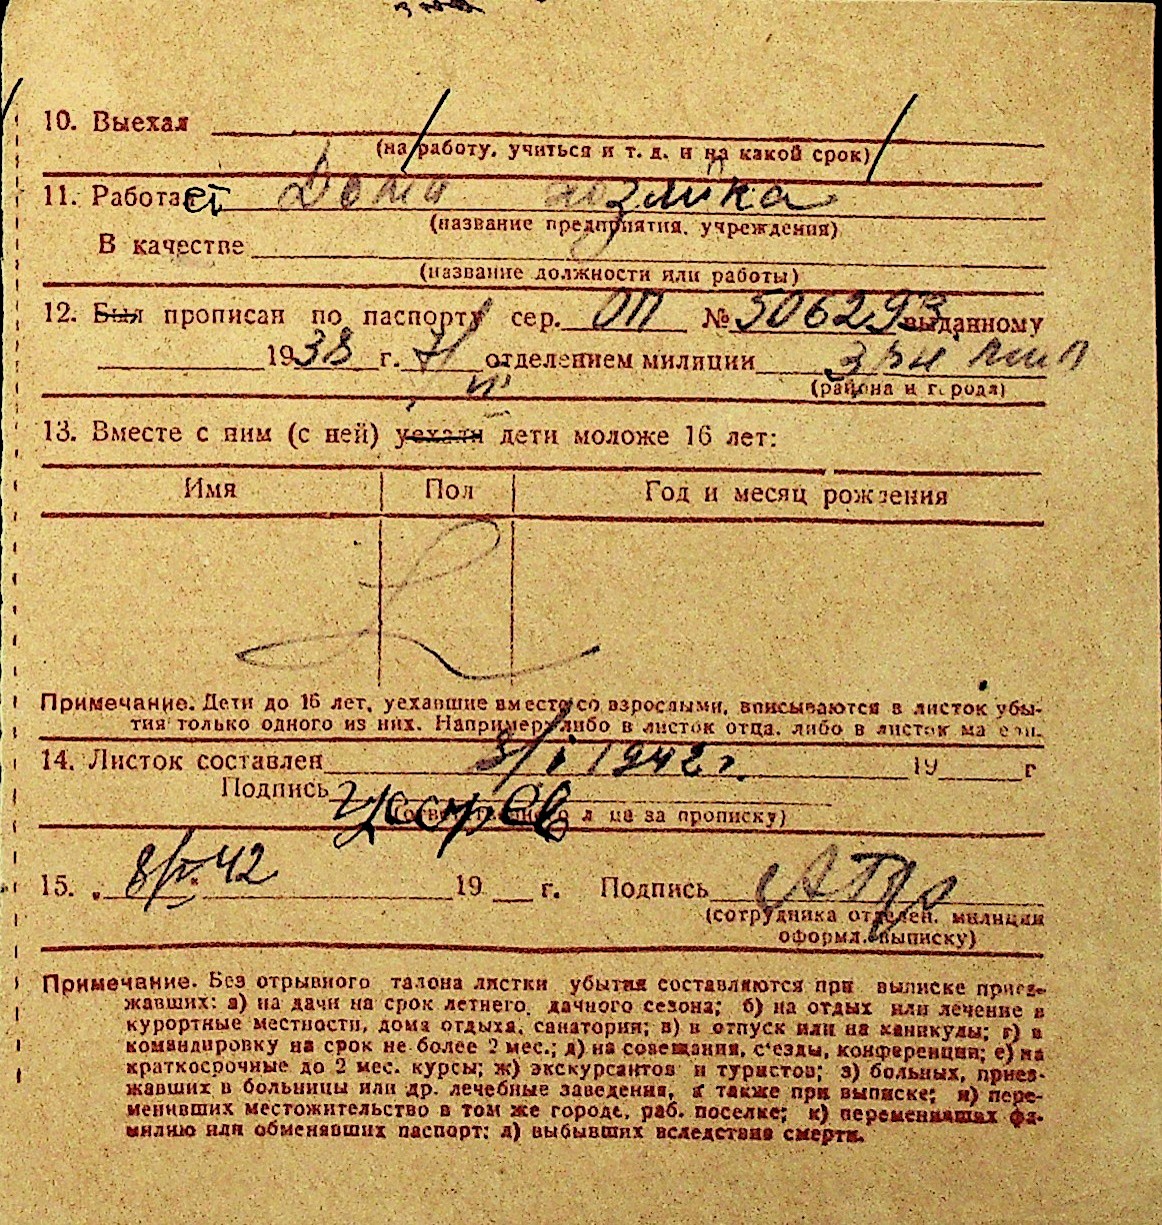 10. Выехал
(на работу, учиться и т. д. и на какой срок)
11. Работает Дома хозяйка
(название предприятия, учреждения)
В качестве
(название должности или работы)
12. Был прописан по паспорту сер. ОП № 506293 выданному
1938 г. отделением милиции
(района и города)
13. Вместе с ним (с ней) уехали дети моложе 16 лет:
Имя Пол Год и месяц рождения
Примечание. Дети до 16 лет, уехавшие вместе со взрослыми, вписываются в листок убы-
тия только одного из них. Например: либо в листок отца, либо в листок матери.
14. Листок составлен 3/I 1942 г. 19 г
Подпись
(ответственного лица за прописку)
15. „ 8/II 42 19 г. Подпись
(сотрудника отделен. милиции
оформл. выписку)
Примечание. Без отрывного талона листки убытия составляются при выписке приез-
жавших: а) на дачи на срок летнего, дачного сезона; б) на отдых или лечение в
курортные местности, дома отдыха, санатории; в) в отпуск или на каникулы; г) в
командировку на срок не более 2 мес.; д) на совещания, с'езды, конференции; е) на
краткосрочные до 2 мес. курсы; ж) экскурсантов и туристов; з) больных, приез-
жавших в больницы или др. лечебные заведения, а также при выписке; и) пере-
менивших местожительство в том же городе, раб. поселке; к) переменивших фа-
милию или обменявших паспорт; л) выбывших вследствие смерти.